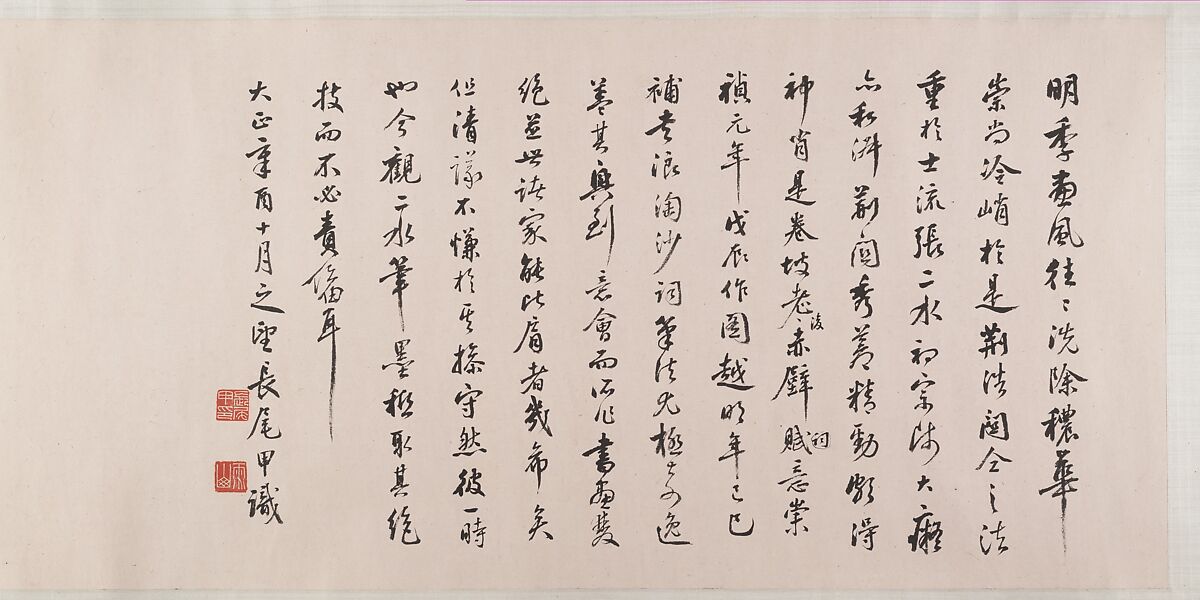 明季畫風往〻洗除穠華
崇尚冷峭於是荊浩關仝之法
重於士流張二水初宗師大癡
亦私淑荊關秀蒼精勁頗得
神肖是卷坡老後赤壁賦詞意崇
禎元年戊辰作圖越明年己巳
補書浪淘沙詞筆法尤極奇逸
蓋其興到意會而所作書畫雙
絕並世諸家能比肩者幾希矣
但清議不慊於其操守然彼一時
也今觀二水筆墨祗取其絕
技而不必責備耳
大正辛酉十月之望長尾甲識